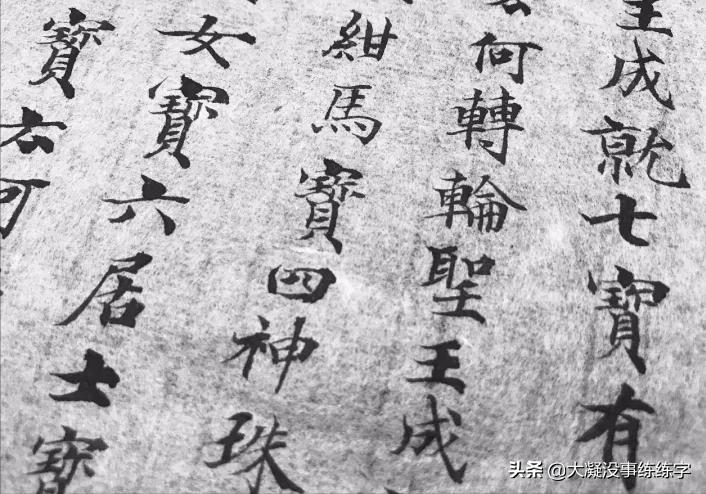 王成就七寶有
何轉輪聖王成
紺馬寶四神珠
女寶六居士寶
寶云何
头条 @大凝没事练练字